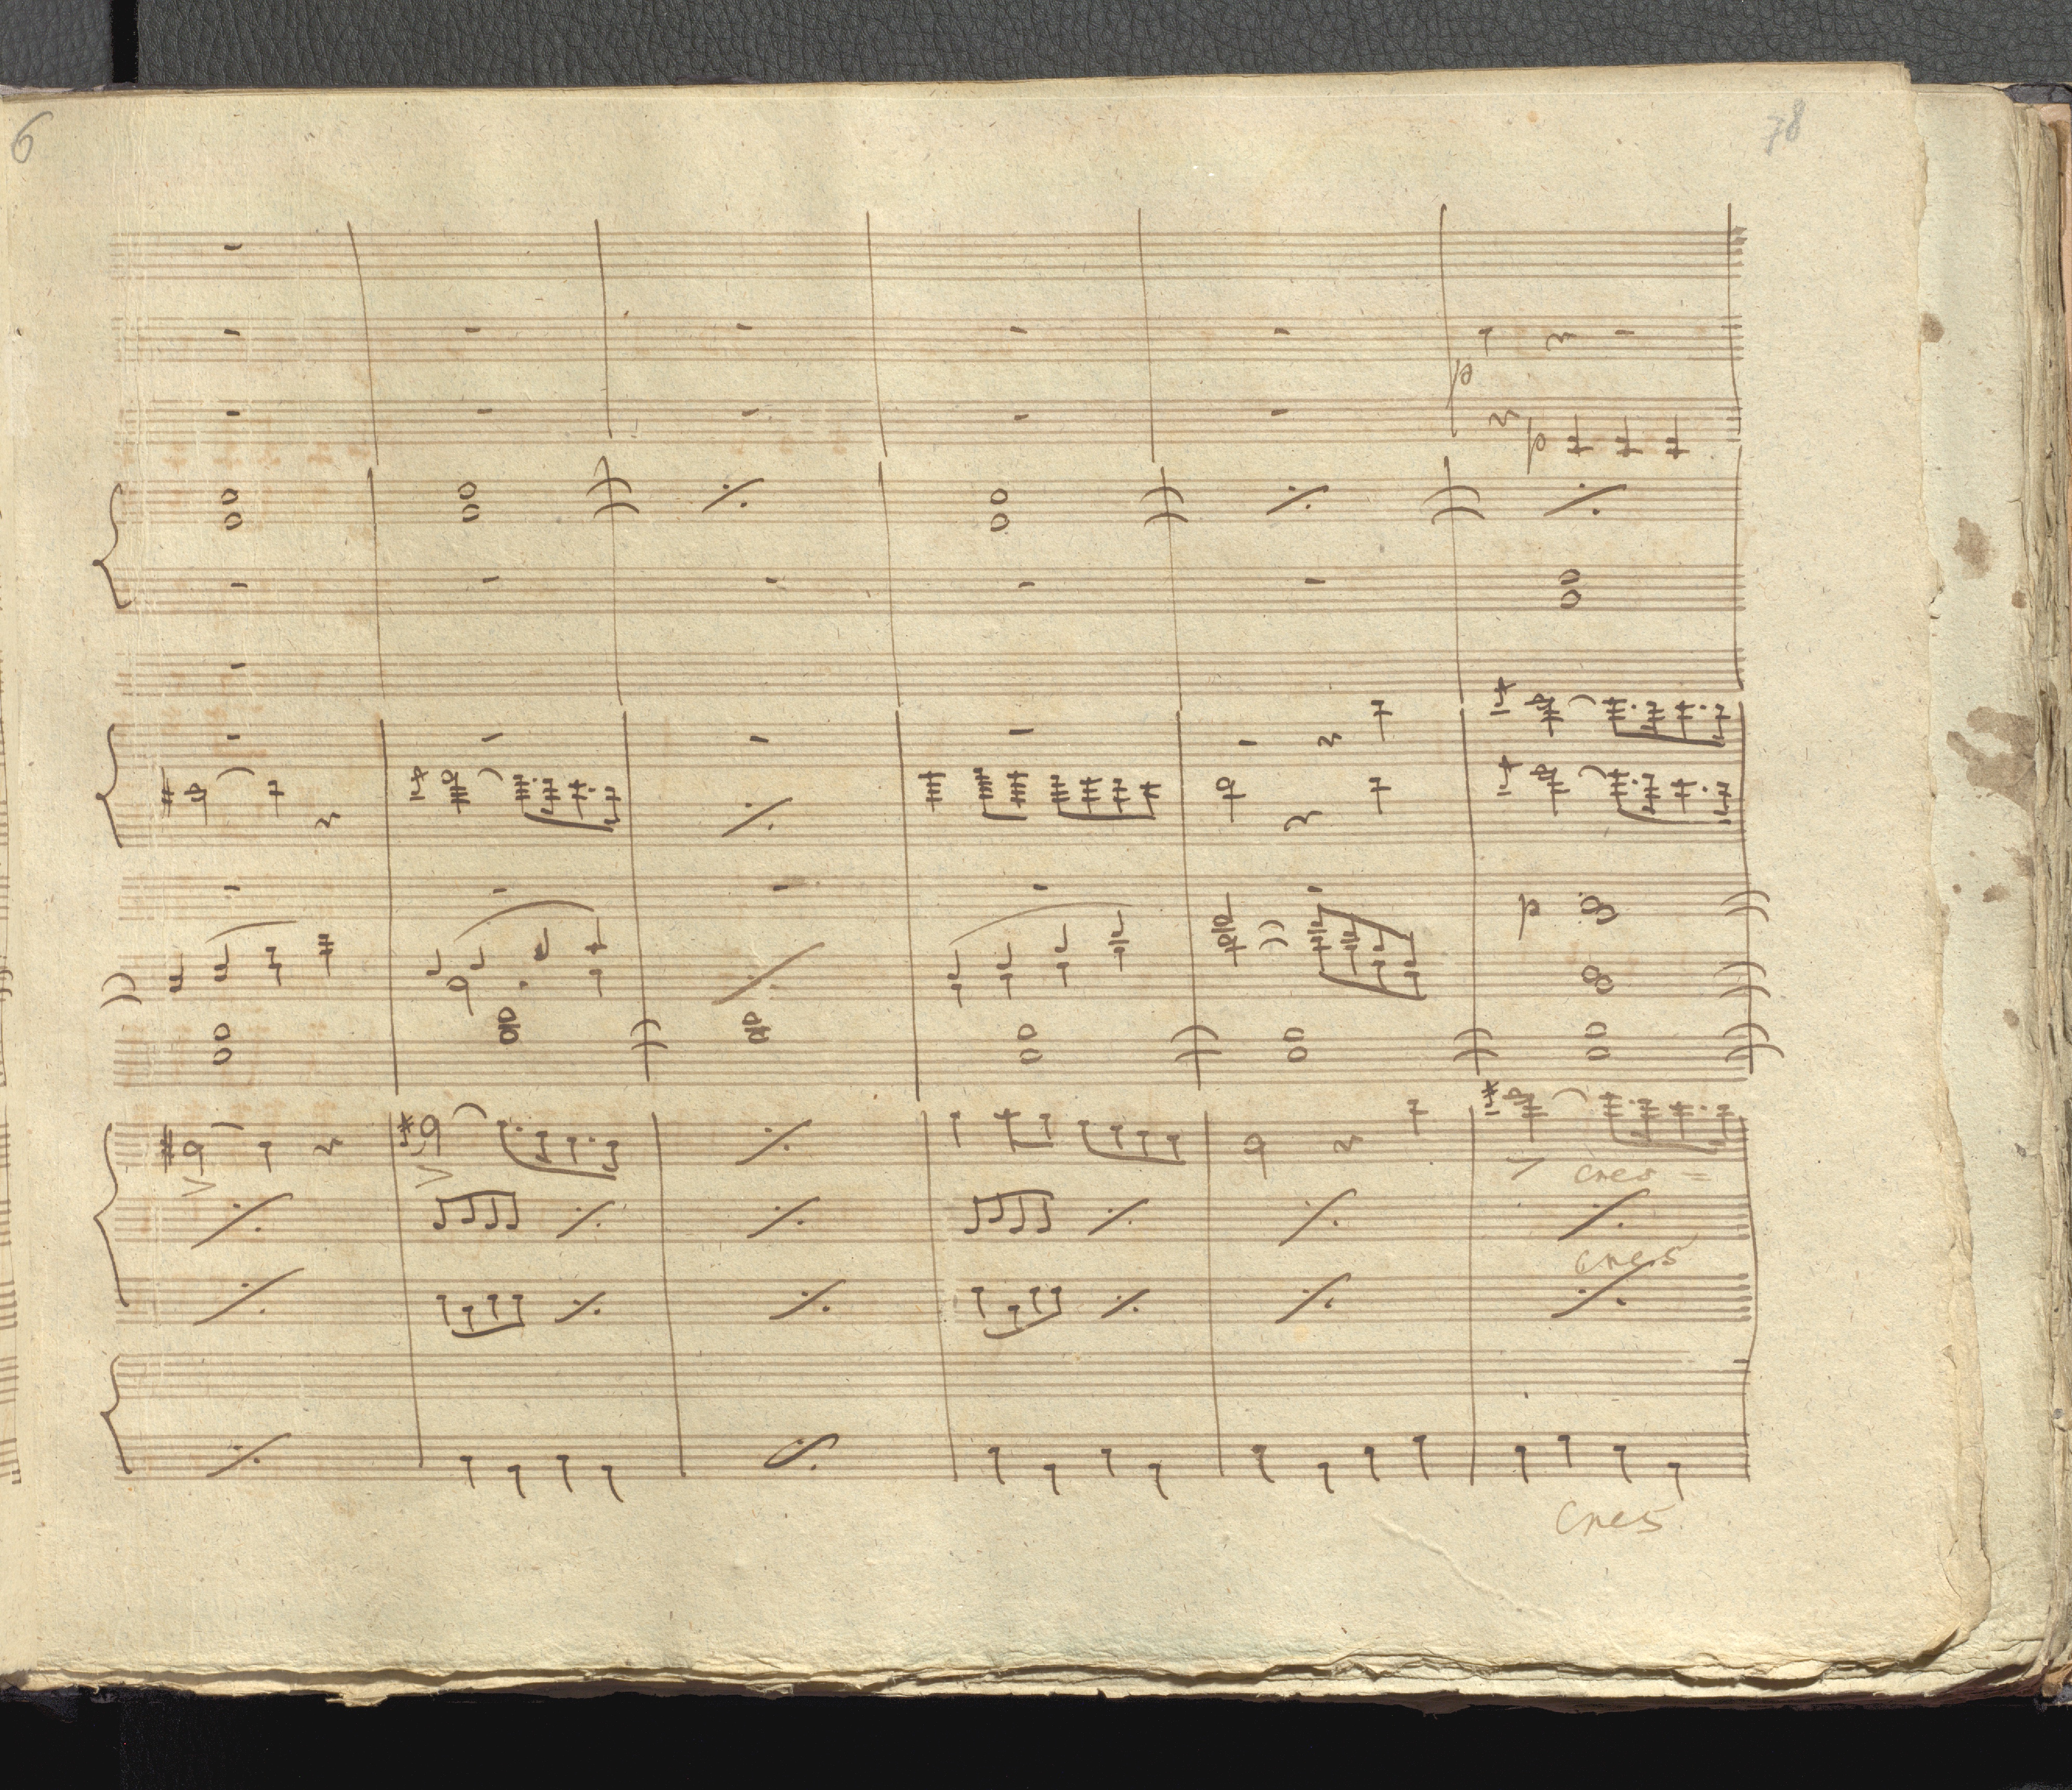 6
78
p
p
p
cres =
cres
Cres